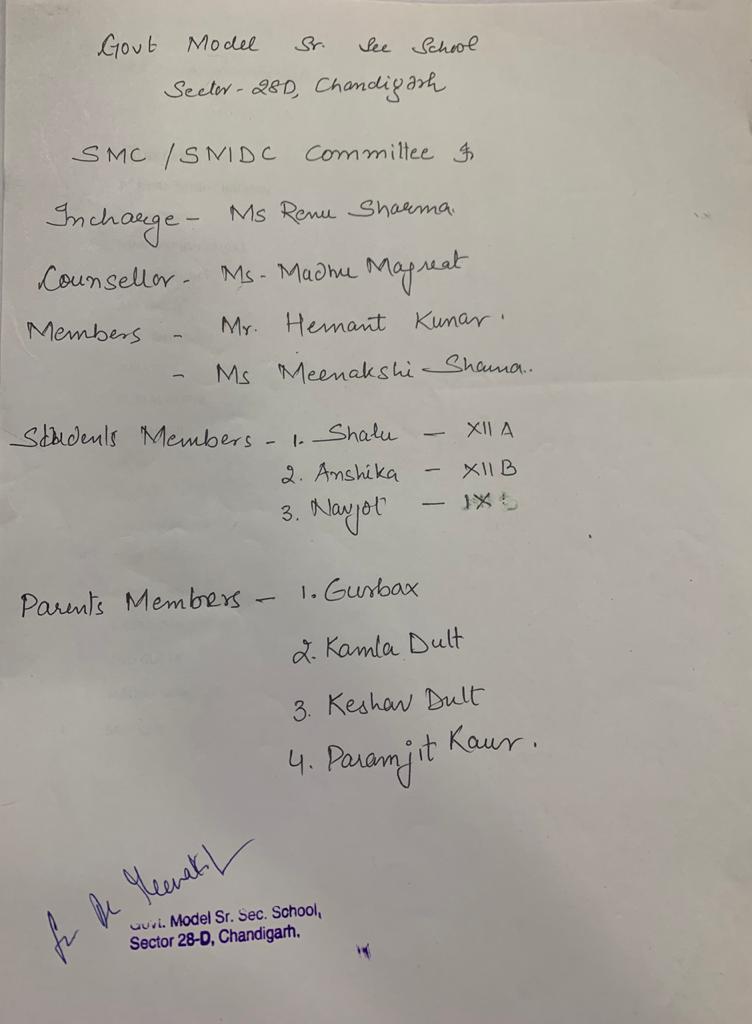 Govt Model Sr. Sec School
Sector - 28D, Chandigarh
SMC / SMDC Committee
Incharge - Ms Renu Sharma.
Counsellor - Ms - Madhu
Members - Mr. Hemant Kumar.
- Ms Meenakshi Sharma..
Students Members - 1. Shalu - XII A
2. Anshika - XII B
3. Navjot - IX
Parents Members - 1. Gurbax
2. Kamla Dutt
3. Keshav Dutt
4. Paramjit Kaur.
Govt. Model Sr. Sec. School,
Sector 28-D, Chandigarh.